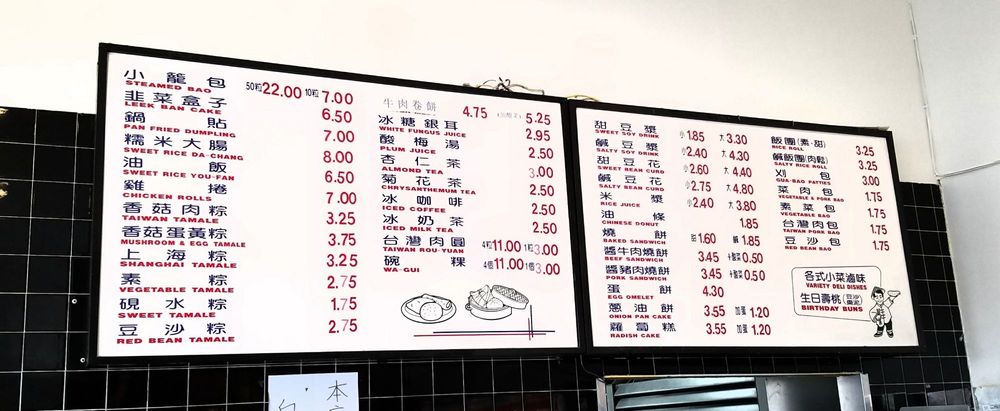 小龍包 50粒22.00 10粒7.00
STEAMED BAO
韭菜盒子 6.50
LEEK BAN CAKE
鍋貼 7.00
PAN FRIED DUMPLING
糯米大腸 8.00
SWEET RICE DA-CHANG
油飯 6.50
SWEET RICE YOU-FAN
雞捲 7.00
CHICKEN ROLLS
香菇肉粽 3.25
TAIWAN TAMALE
香菇蛋黃粽 3.75
MUSHROOM & EGG TAMALE
上海粽 3.25
SHANGHAI TAMALE
素粽 2.75
VEGETABLE TAMALE
硯水粽 1.75
SWEET TAMALE
豆沙粽 2.75
RED BEAN TAMALE
牛肉卷餅 4.75 5.25
冰糖銀耳 2.95
WHITE FUNGUS JUICE
酸梅湯 2.50
PLUM JUICE
杏仁茶 3.00
ALMOND TEA
菊花茶 2.50
CHRYSANTHEMUM TEA
冰咖啡 2.50
ICED COFFEE
冰奶茶 2.50
ICED MILK TEA
台灣肉圓 4粒11.00 1粒3.00
TAIWAN ROU-YUAN
碗粿 4個11.00 1個3.00
WA-GUI
甜豆漿 小1.85 大3.30
SWEET SOY DRINK
鹹豆漿 小2.40 大4.30
SALTY SOY DRINK
甜豆花 小2.60 大4.40
SWEET BEAN CURD
鹹豆花 小2.75 大4.80
SALTY BEAN CURD
米漿 小2.40 大3.80
RICE JUICE
油條 1.85
CHINESE DONUT
燒餅 甜1.60 鹹1.85
BAKED SANDWICH
醬牛肉燒餅 3.45 +酸菜0.50
BEEF SANDWICH
醬豬肉燒餅 3.45 +酸菜0.50
PORK SANDWICH
蛋餅 4.30
EGG OMELET
蔥油餅 3.55 加蛋1.20
ONION PAN CAKE
蘿蔔糕 3.55 加蛋1.20
RADISH CAKE
飯團(素·甜) 3.25
RICE ROLL
鹹飯團(肉鬆) 3.25
SALTY RICE ROLL
刈包 3.00
GUA-BAO PATTIES
菜肉包 1.75
VEGETABLE PORK BAO
素菜包 1.75
VEGETABLE BAO
台灣肉包 1.75
TAIWAN PORK BAO
豆沙包 1.75
RED BEAN BAO
各式小菜滷味
VARIETY DELI DISHES
生日壽桃(豆沙 棗泥)
BIRTHDAY BUNS
本